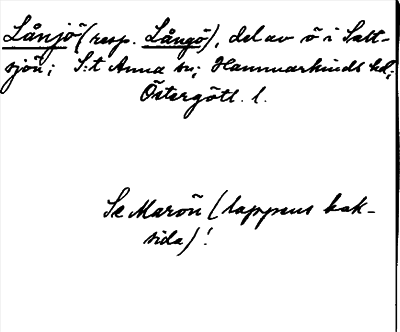 Långö (resp. Långö), del av ö i Salt-
sjön; S:t Anna sn; Hammarkinds hd;
Östergötl. l.
Se Marön (lappens bak-
sida)!